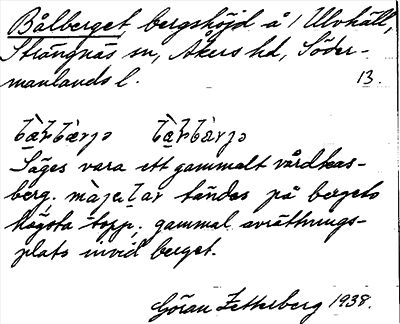 Bålberget, bergshöjd å 1 Ulvhäll,
Strängnäs sn, Åkers hd, Söder-
manlands l. 13.
Säges vara ett gammalt vårdkas-
berg. tändes på bergets
högsta topp; gammal avrättnings-
plats invid berget.
Göran Zetterberg 1938.